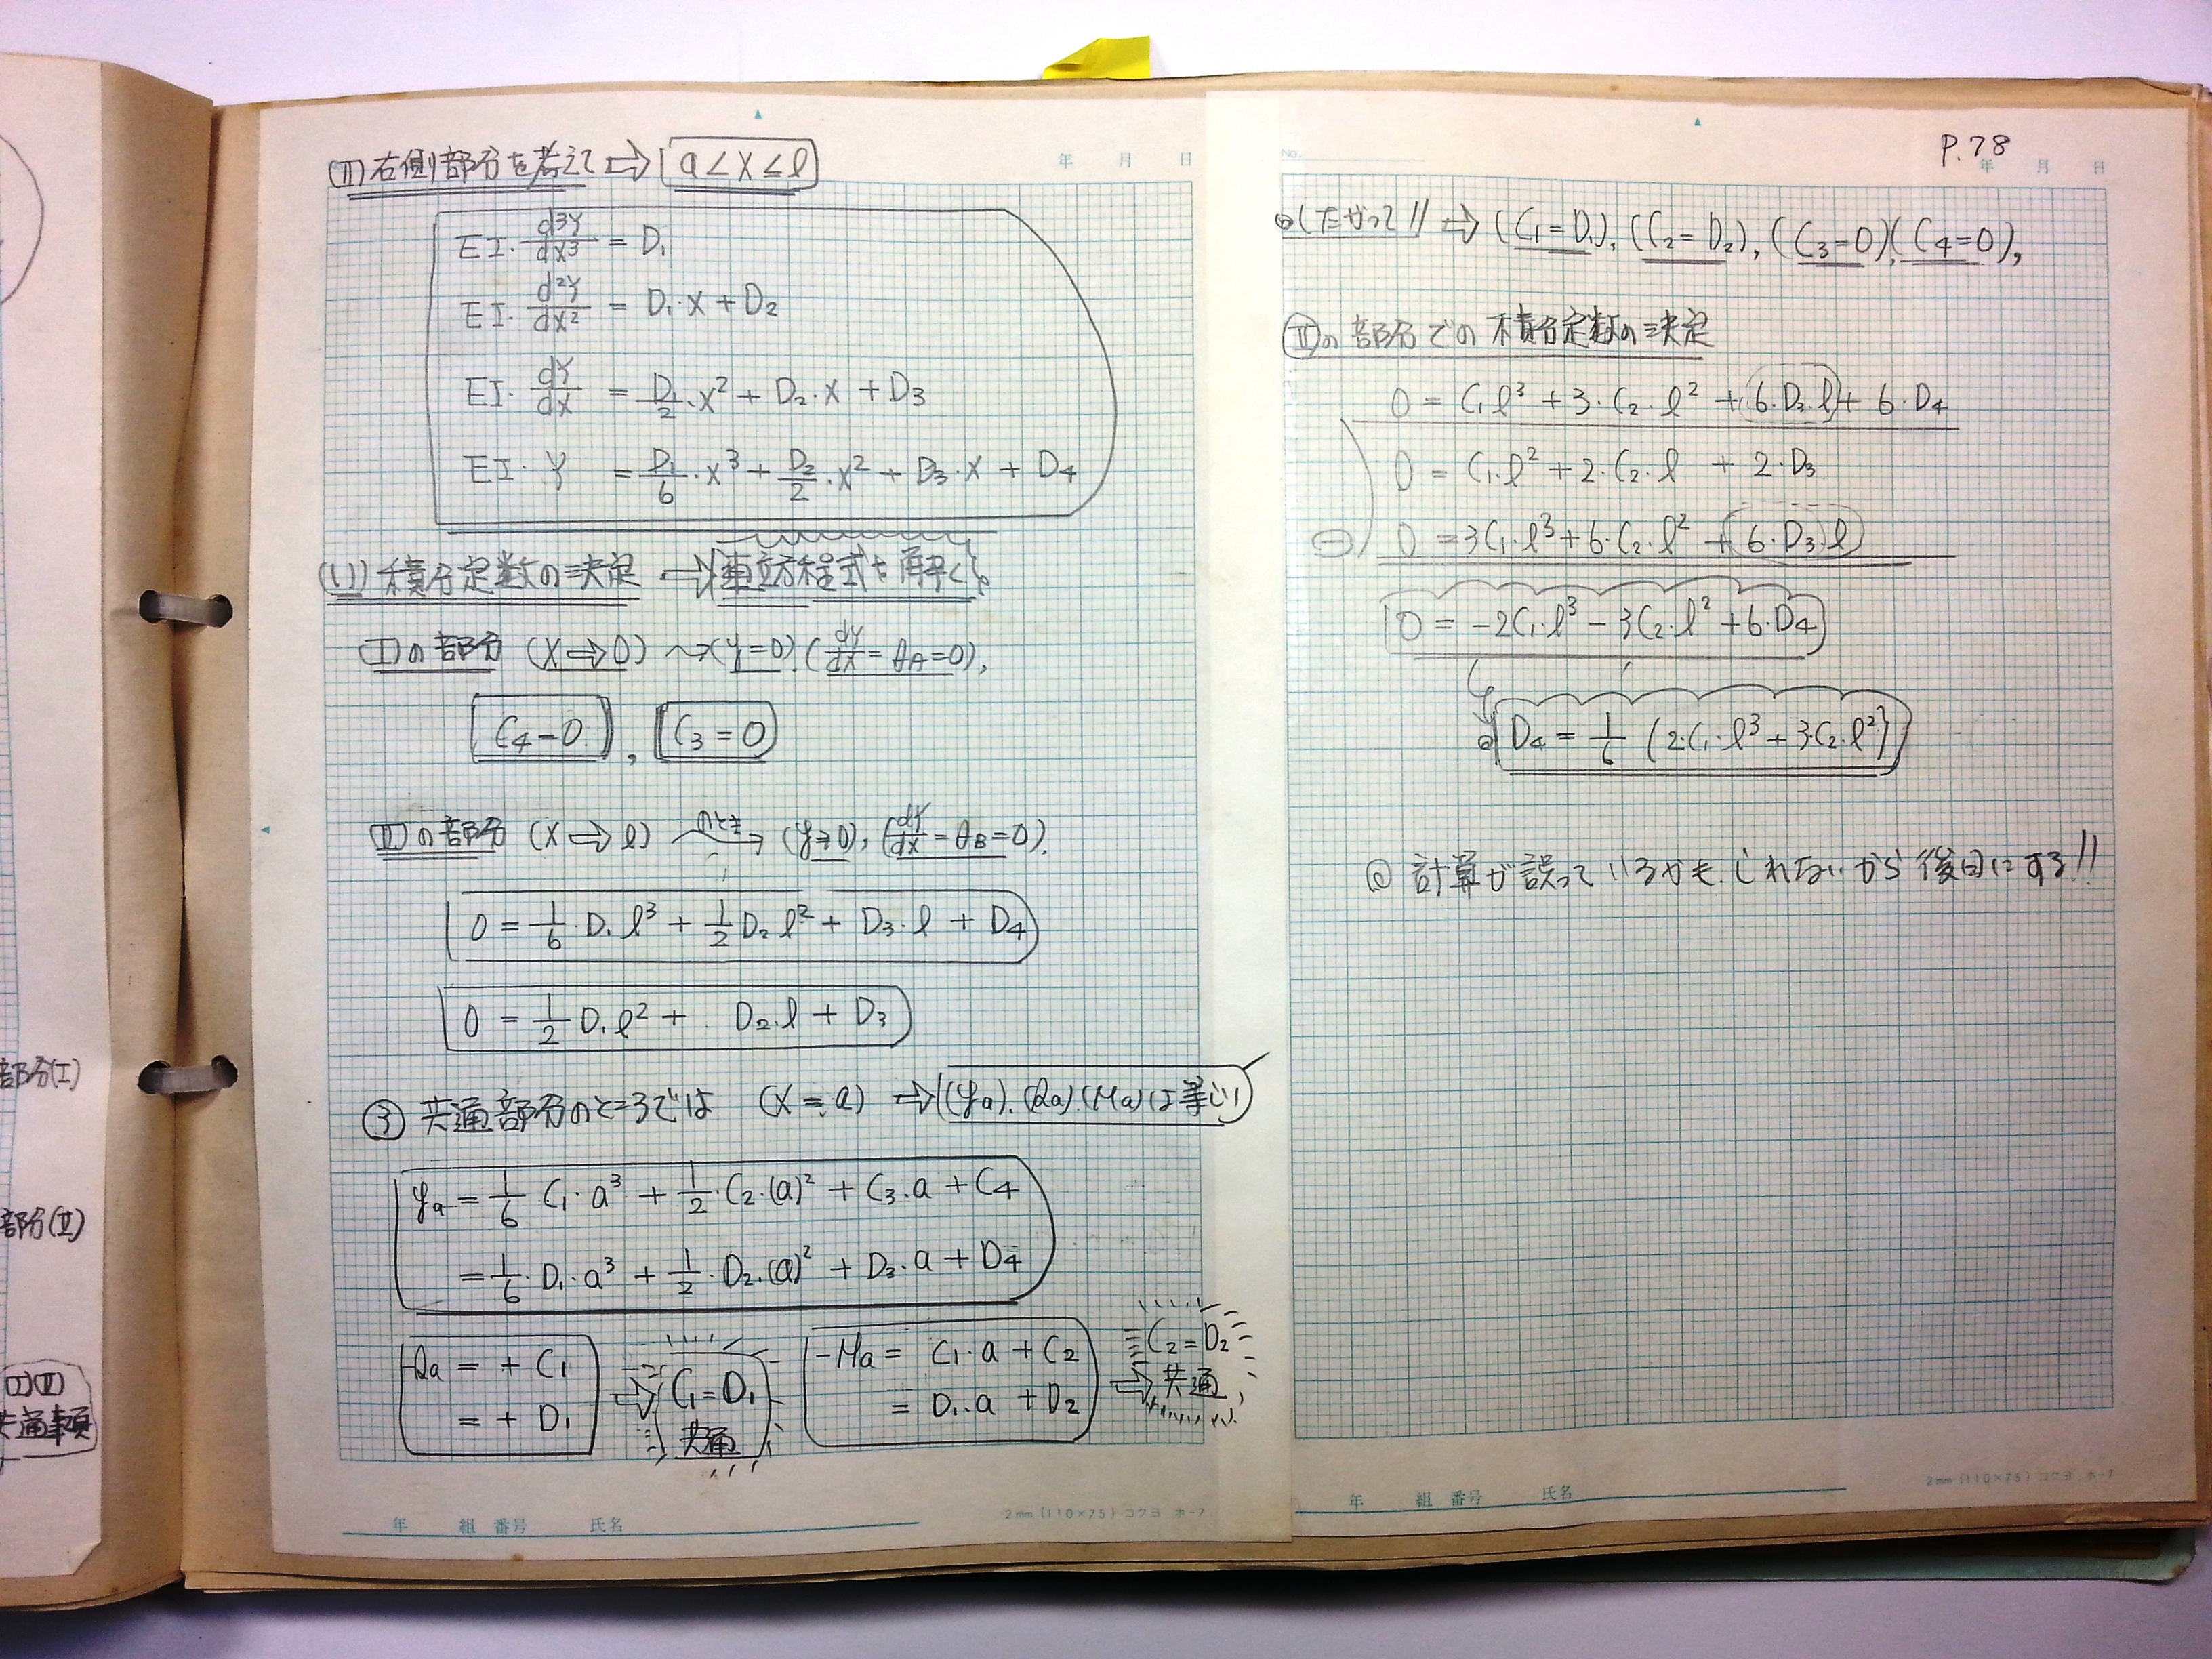 部分(I)
部分(II)
(I)(II)
共通事項
年 月 日
(II) 右側部分を考えて ⇨ a < x ≤ l
EI・d³y/dx³ = D₁
EI・d²y/dx² = D₁・x + D₂
EI・dy/dx = D₁/2・x² + D₂・x + D₃
EI・y = D₁/6・x³ + D₂/2・x² + D₃・x + D₄
積分定数の決定 → 連立方程式を解く
Iの部分 (x ⇨ 0) ⤳ (y=0), (dy/dx = θA = 0),
C₄=0, C₃=0
IIの部分 (x ⇨ l) のとき→ (y=0), (dy/dx = θB = 0).
0 = 1/6・D₁ l³ + 1/2 D₂ l² + D₃・l + D₄
0 = 1/2 D₁ l² + D₂・l + D₃
③ 共通部分のところでは (x = a) ⇨ (ya).(Qa).(Ma)は等しい
ya = 1/6 C₁・a³ + 1/2・C₂・(a)² + C₃・a + C₄
= 1/6・D₁・a³ + 1/2・D₂・(a)² + D₃・a + D₄
-Qa = + C₁
= + D₁
⇨ C₁ = D₁
共通
-Ma = C₁・a + C₂
= D₁・a + D₂
⇨ C₂ = D₂
共通
年 組 番号 氏名
2mm (110×75) コクヨ ホ-7
No.
P.78
年 月 日
したがって!! ⇨ (C₁=D₁), (C₂=D₂), (C₃=0)(C₄=0),
IIの部分での積分定数の決定
0 = C₁l³ + 3・C₂・l² + 6・D₃・l + 6・D₄
0 = C₁・l² + 2・C₂・l + 2・D₃
⊖ 0 = 3C₁・l³ + 6・C₂・l² + 6・D₃・l
0 = -2C₁・l³ - 3C₂・l² + 6・D₄
D₄ = 1/6 (2・C₁・l³ + 3・C₂・l²)
◎ 計算が誤っているかもしれないから後日にする!!
年 組 番号 氏名
2mm (110×75) コクヨ ホ-7